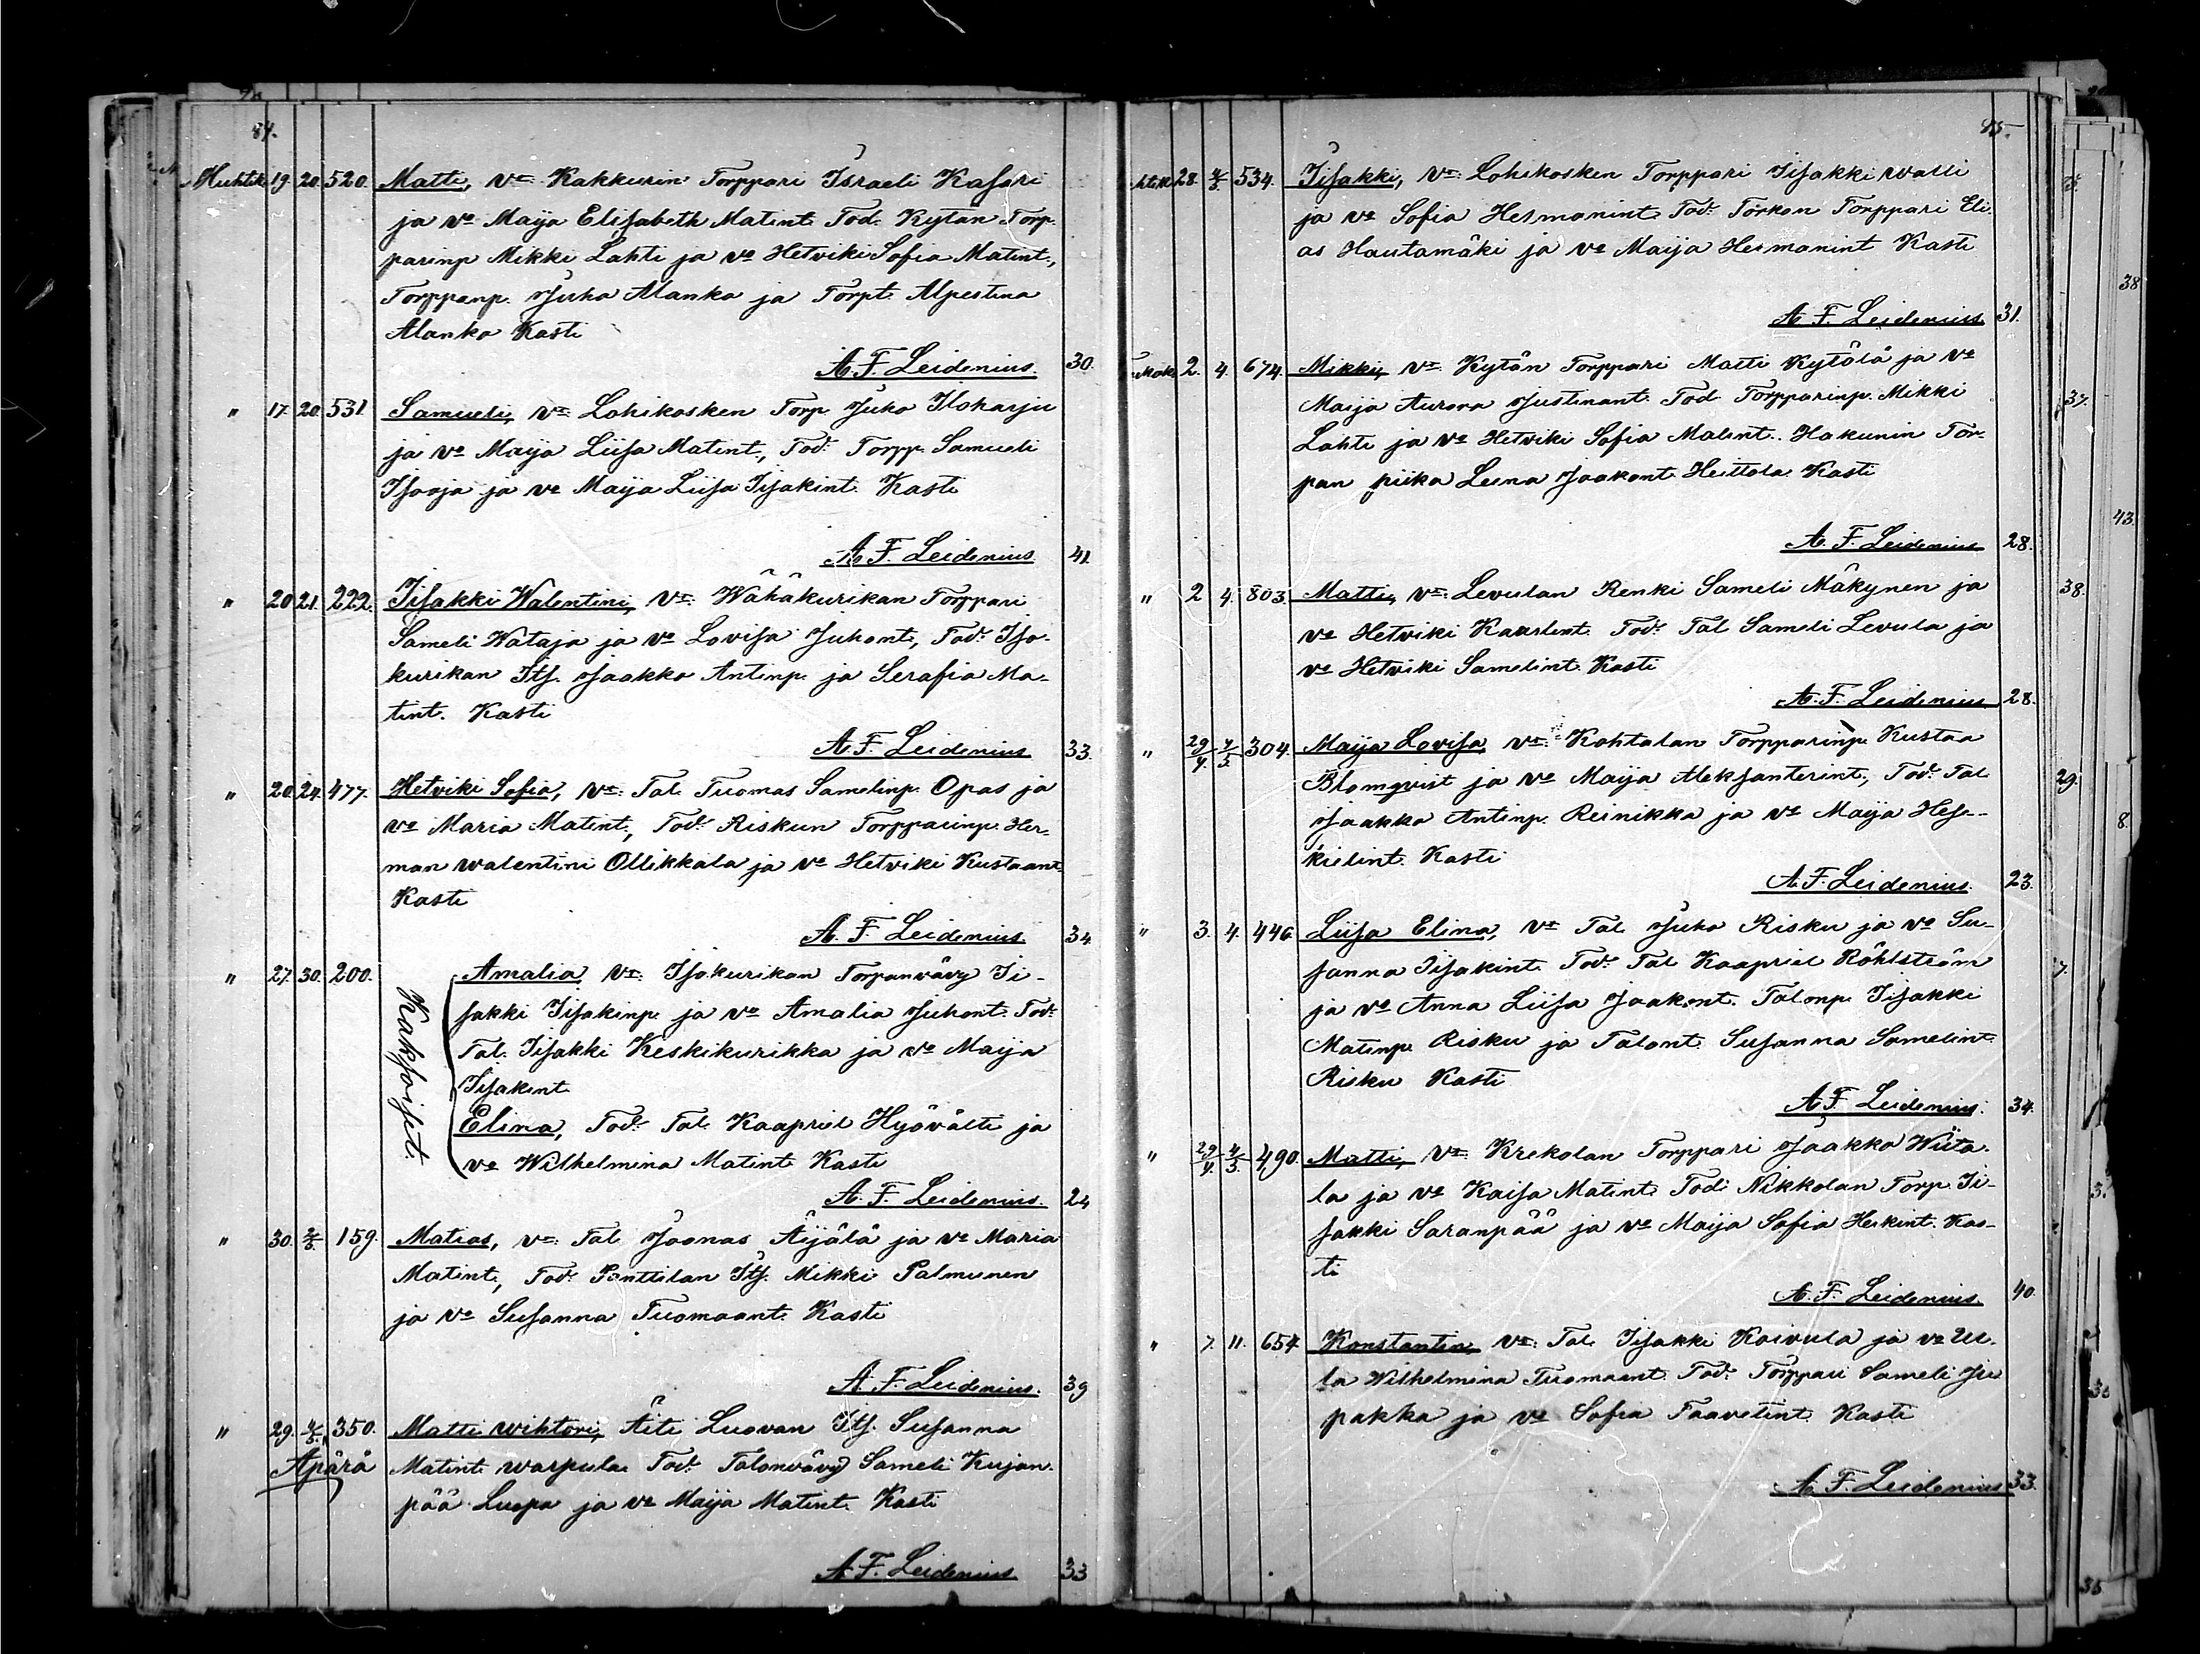 84.
Huhtik 19. 20. 520. Matti, va. Kakkurin Torppari Israeli Kasari
ja vo Maija Elisabeth Matint. Tod. Kytan Torp-
parinp Mikki Lahti ja vo Hetviki Sofia Matint.,
Torppanp. Juho Alanko ja Torpt. Alpestina
Alanko Kasti
A. F. Leidenius. 30.
" 17. 20. 531. Samueli, va. Lohikosken Torp. Juho Iloharju
ja vo Maija Liisa Matint., Tod. Torpp. Samueli
Isooja ja vo Maija Liisa Iisakint. Kasti
A. F. Leidenius. 41.
" 20. 21. 222. Iisakki Walentini, va. Wähäkurikan Torppari
Sameli Wataja ja vo Lovisa Juhont., Tod. Iso-
kurikan Its. Jaakko Antinp. ja Serafia Ma-
tint. Kasti
A. F. Leidenius 33.
" 20. 24. 477. Hetviki Sofia, va. Tal. Tuomas Samelinp. Opas ja
vo Maria Matint., Tod. Riskun Torpparinp. Her-
man Walentini Ollikkala ja vo Hetviki Kustaant.
Kasti
A. F. Leidenius. 34
" 27. 30. 200. Amalia va. Isokurikan Torpanvävy Ii-
sakki Iisakinp. ja vo Amalia Juhont. Tod.
Kaksoiset.
Tal. Iisakki Keskikurikka ja vo Maija
Iisakint.
Elina, Tod. Tal. Kaapriel Hyövälti ja
vo Wilhelmina Matint. Kasti
A. F. Leidenius. 24
" 30. 2/5. 159. Matias, va. Tal. Joonas Äijälä ja vo Maria
Matint., Tod. Panttilan Its. Mikki Palmunen
ja vo Susanna Tuomaant. Kasti
A. F. Leidenius. 39
" 29. 4/5. 350. Matti Wihtori, Äiti Luovan Its. Susanna
Äpärä Matint. Warpula Tod. Talonvävy Sameli Kujan-
pää Luopa ja vo Maija Matint. Kasti
A. F. Leidenius 33
85.
htik 28. 4/5. 534. Iisakki, va. Lohikosken Torppari Iisakki Walli
ja vo Sofia Hermanint. Tod. Törkön Torppari Eli-
as Hautamäki ja vo Maija Hermanint Kasti
A. F. Leidenius 31.
Touk 2. 4. 674. Mikki, va. Kytön Torppari Matti Kytölä ja vo
Maija Aurora Justinant. Tod. Torpparinp. Mikki
Lahti ja vo Hetviki Sofia Matint. Hakunin Tor-
pan piika Leena Jaakont. Heittola Kasti
A. F. Leidenius 28.
" 2 4. 803. Matti, va. Levulan Renki Sameli Mäkynen ja
vo Hetviki Kaarlent. Tod. Tal. Sameli Levula ja
vo Hetviki Samelint. Kasti
A. F. Leidenius 28.
" 29/4. 4/5. 304. Maija Lovisa, va. Kohtalan Torpparinp. Kustaa
Blomqvist ja vo Maija Aleksanterint., Tod. Tal.
Jaakko Antinp. Reinikka ja vo Maija Hese-
kielint. Kasti
A. F. Leidenius. 23.
" 3. 4. 446 Liisa Elina, va. Tal. Juho Risku ja vo Su-
sanna Iisakint. Tod. Tal. Kaapriel Röhlström
ja vo Anna Liisa Jaakont. Talonp. Iisakki
Matinp. Risku ja Talont. Susanna Samelint.
Risku Kasti
A. F. Leidenius. 34.
" 29/4. 4/5. 490. Matti, va. Krekolan Torppari Jaakko Wiita-
la ja vo Kaisa Matint. Tod. Nikkolan Torp. Ii-
sakki Saranpää ja vo Maija Sofia Herkint. Kas-
ti
A. F. Leidenius 40.
" 7. 11. 654 Konstantin, va. Tal. Iisakki Koivula ja vo Ul-
la Wilhelmina Tuomaant. Tod. Torppari Sameli Ju
pakka ja vo Sofia Taavetint. Kasti
A. F. Leidenius 33.
38
37.
43.
38.
29.
8.
7.